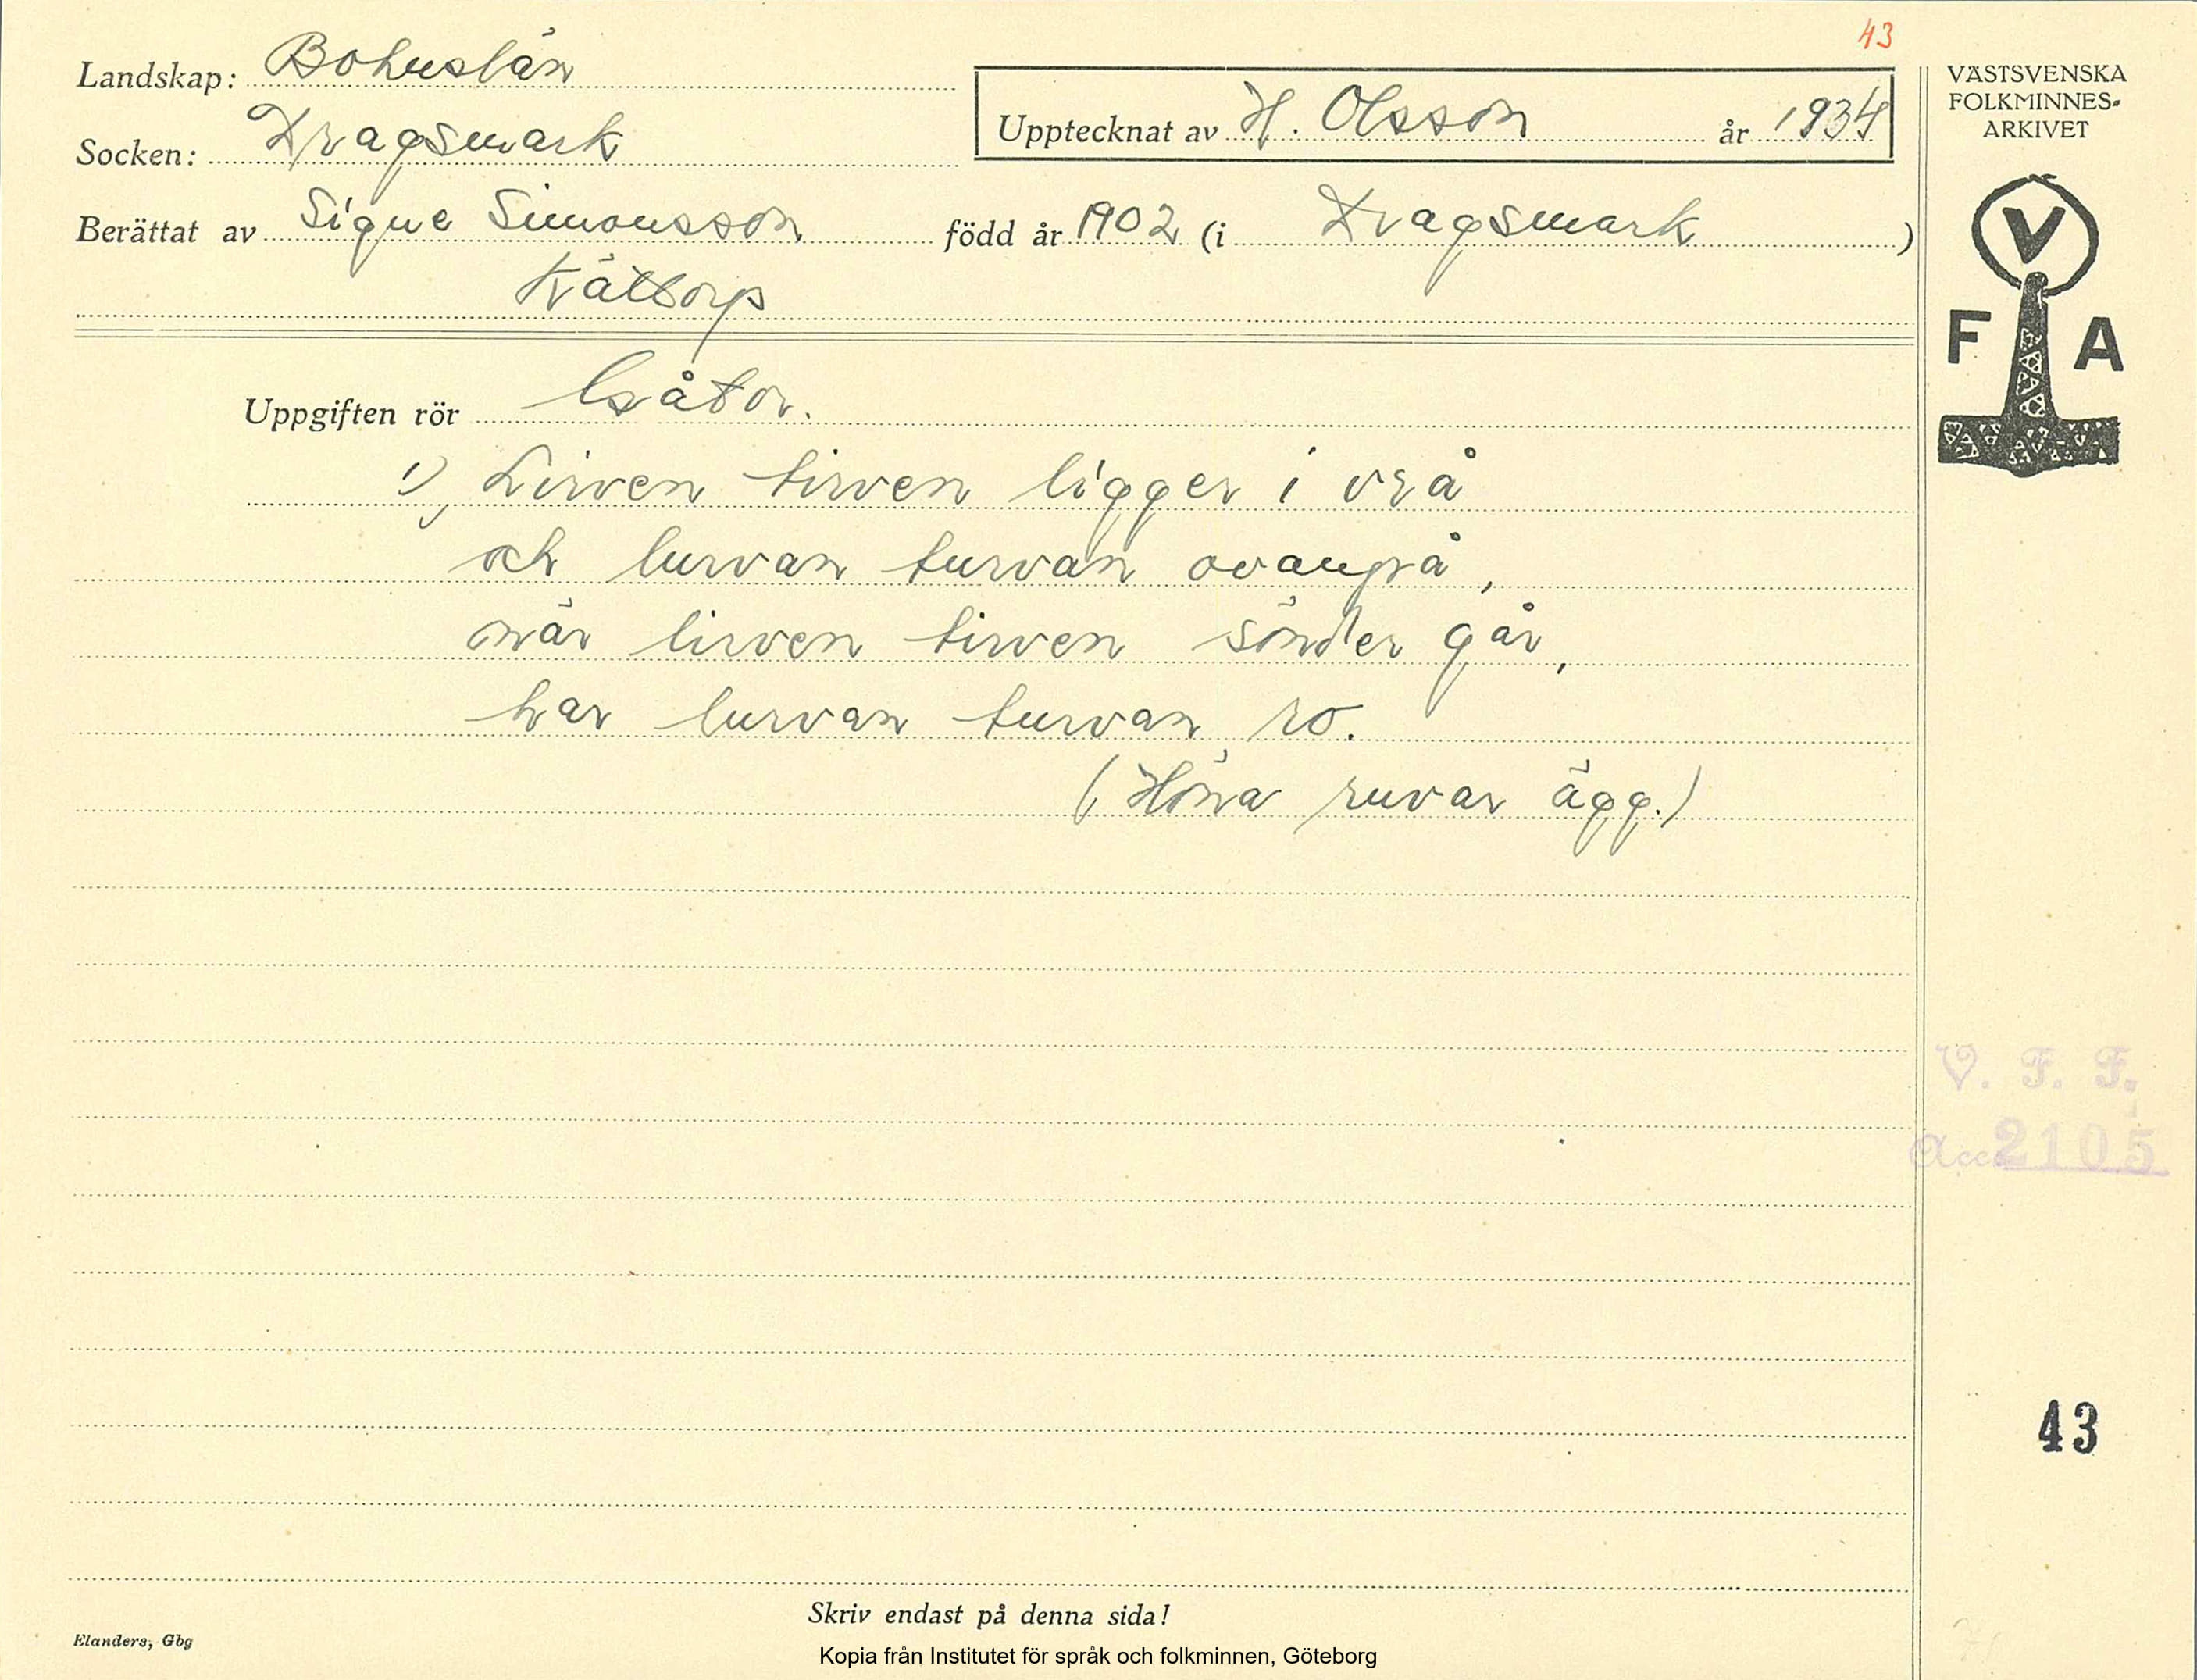 43
Landskap: Bohuslän
Socken: Dragsmark
Upptecknat av H. Olsson år 1934
Berättat av Signe Simonsson född år 1902 (i Dragsmark)
Kättorp
VÄSTSVENSKA
FOLKMINNES-
ARKIVET
V
F A
Uppgiften rör Gåtor.
1) Lirven tirven ligger i vrå
och lurvan turvan ovanpå,
när lirven tirven sönder går,
har lurvan turvan ro.
(Höna ruvar ägg.)
V. F. F.
Acc. 2105
43
Skriv endast på denna sida!
Elanders, Gbg
Kopia från Institutet för språk och folkminnen, Göteborg